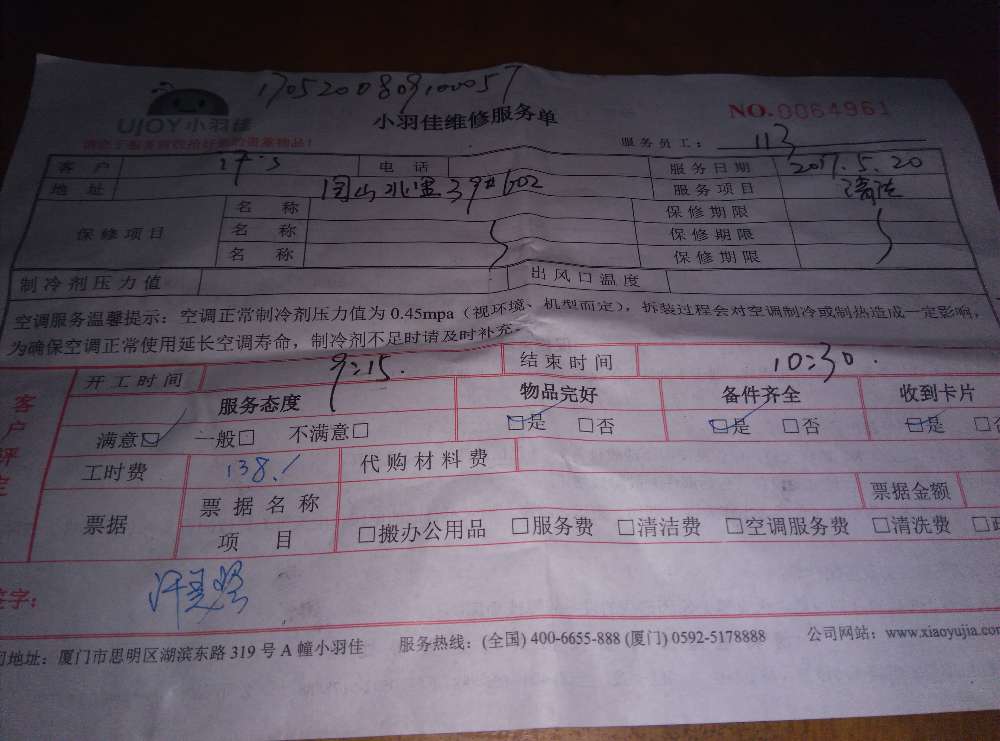 170520080910057
UJOY小羽佳
小羽佳维修服务单
NO.0064961
服务员工: 113
客户 电话 服务日期 2017.5.20
地址 39#602 服务项目 清洗
保修项目 名称 保修期限
名称 保修期限
名称 保修期限
制冷剂压力值 出风口温度
空调服务温馨提示：空调正常制冷剂压力值为 0.45mpa（视环境、机型而定），拆装过程会对空调制冷或制热造成一定影响，
为确保空调正常使用延长空调寿命，制冷剂不足时请及时补充。
客户评定
开工时间 9:15. 结束时间 10:30.
服务态度 物品完好 备件齐全 收到卡片
满意□ 一般□ 不满意□ □是 □否 □是 □否 □是
工时费 138.- 代购材料费
票据 票据名称 票据金额
项目 □搬办公用品 □服务费 □清洁费 □空调服务费 □清洗费
签字:
司地址：厦门市思明区湖滨东路 319 号 A 幢小羽佳 服务热线：(全国) 400-6655-888 (厦门) 0592-5178888 公司网站：www.xiaoyujia.com